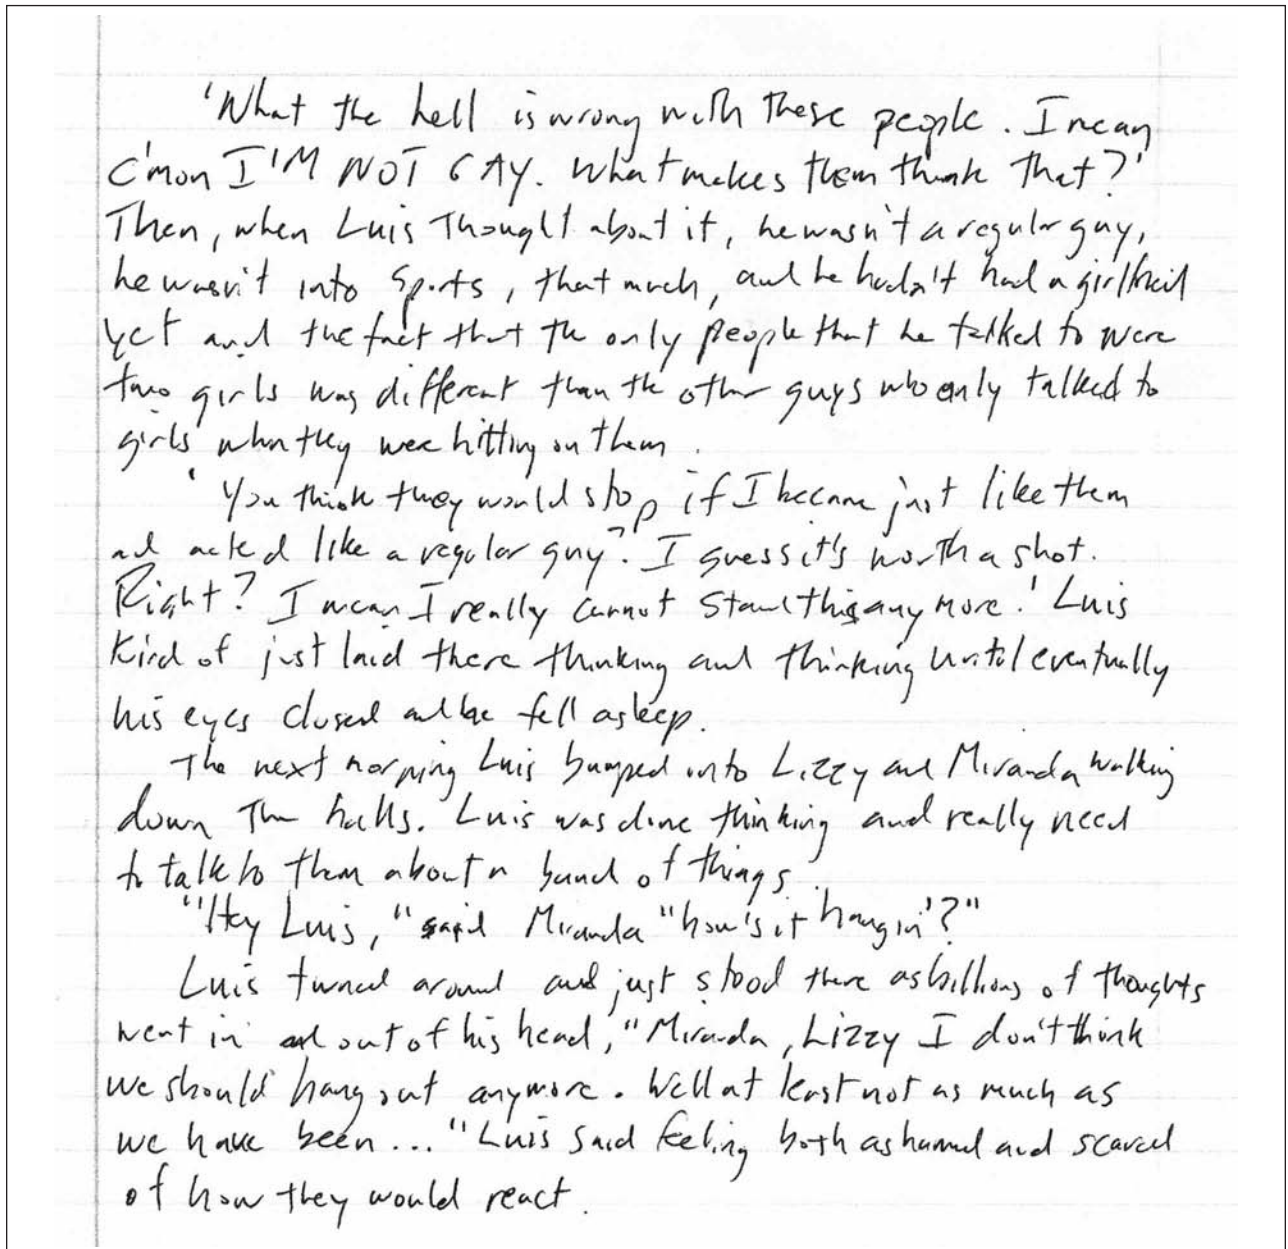 'What the hell is wrong with these people. I mean
C'mon I'M NOT GAY. What makes them think that?'
Then, when Luis thought about it, he wasn't a regular guy,
he wasn't into sports, that much, and he hadn't had a girlfriend
yet and the fact that the only people that he talked to were
two girls was different than the other guys who only talked to
girls when they were hitting on them.
'You think they would stop if I became just like them
and acted like a regular guy? I guess it's worth a shot.
Right? I mean I really cannot stand this anymore.' Luis
Kind of just laid there thinking and thinking until eventually
his eyes closed and he fell asleep.
The next morning Luis bumped into Lizzy and Miranda walking
down the halls. Luis was done thinking and really need
to talk to them about a bunch of things.
"Hey Luis," said Miranda "how's it hangin'?"
Luis turned around and just stood there as billions of thoughts
went in and out of his head, "Miranda, Lizzy I don't think
we should hang out anymore. Well at least not as much as
we have been..." Luis said feeling both ashamed and scared
of how they would react.